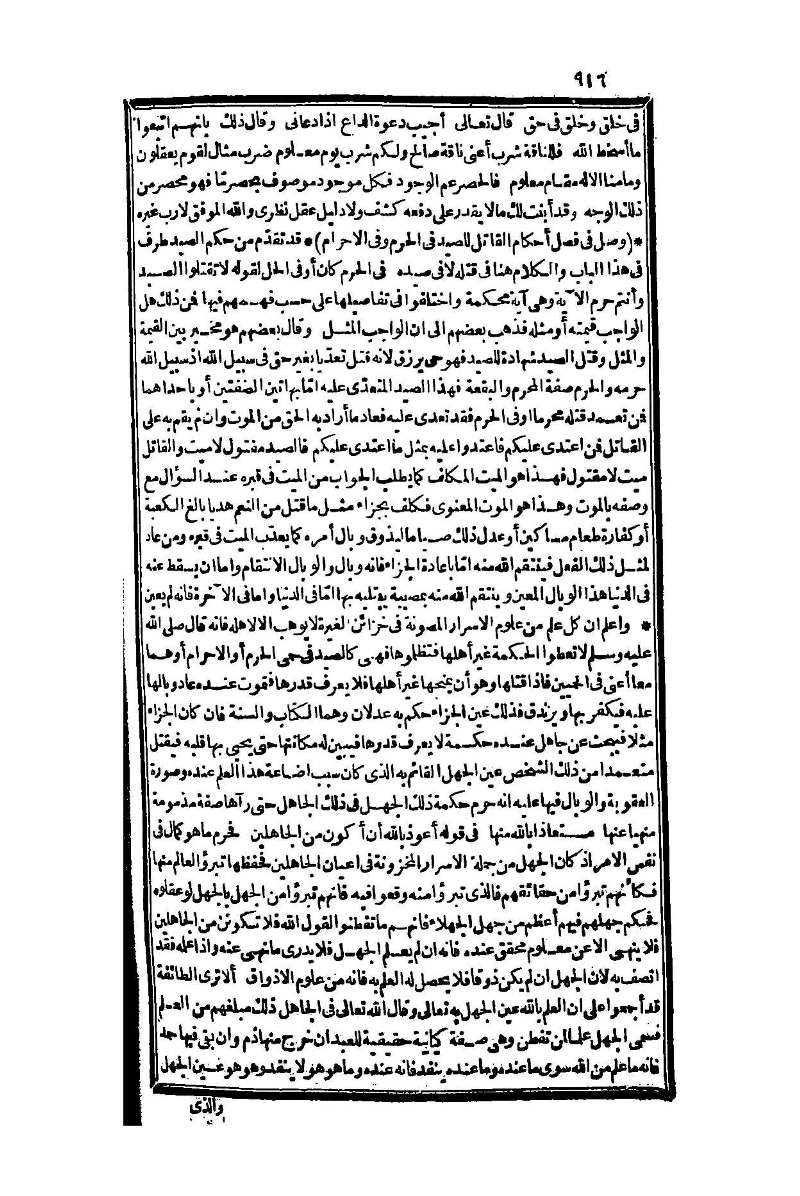 ٩١٦
فى خلق وخلق فى حق قال تعالى أجيب دعوة الداع اذا دعانى وقال ذلك بانهم اتبعوا
ما أسخط الله فللناقة شرب أعنى ناقة صالح ولكم شرب يوم معلوم ضرب مثال لقوم يعقلون
وما منا الا له مقام معلوم فالحصر عم الوجود فكل موجود موصوف بحصر ما فهو محصر من
ذلك الوجه وقد أبنت لك ما لا يقدر على دفعه كشف ولا دليل عقل نظرى والله الموفق لا رب غيره
* (وصل فى فصل أحكام القاتل للصيد فى الحرم وفى الاحرام) * قد تقدّم من حكم الصيد طرف
فى هذا الباب والكلام هنا فى قتله لا فى صيده فى الحرم كان أو فى الحل لقوله لا تقتلوا الصيد
وأنتم حرم الآية وهى آية محكمة واختلفوا فى تفاصيلها على حسب فهمهم فيها فن ذلك هل
الواجب قيمته أو مثله فذهب بعضهم الى ان الواجب المثل وقال بعضهم هو مخير بين القيمة
والمثل وقتل الصيد شهادة للصيد فهو حى يرزق لانه قتل تعديا بغير حق فى سبيل الله اذ سبيل الله
حرمه والحرم صفة المحرم والبقعة فهذا الصيد المتعدّى عليه امّا بهاتين الصفتين أو باحداهما
فن تعمد قتله محرما أو فى الحرم فقد تعدى عليه فعاد ما أراد به الحق من الموت وان لم يقم به على
القاتل فن اعتدى عليكم فاعتدوا عليه بمثل ما اعتدى عليكم فالصيد مقتول لا ميت والقاتل
ميت لا مقتول فهذا هو الميت المكلف كما يطلب الجواب من الميت فى قبره عند السؤال مع
وصفه بالموت وهذا هو الموت المعنوى فكلف بجزاء مثل ما قتل من النعم هديا بالغ الكعبة
أو كفارة طعام مساكين أو عدل ذلك صياما ليذوق وبال أمره كما يعذب الميت فى قبره ومن عاد
لمثل ذلك الفعل فينتقم الله منه امّا باعادة الجزاء فانه وبال والوبال الانتقام واما ان يسقط عنه
فى الدنيا هذا الوبال المعين وينتقم الله منه بمصيبة يبتليه بها امّا فى الدنيا واما فى الآخرة فانه لم يعين
* واعلم ان كل علم من علوم الاسرار المصونة فى خزائن الغيرة لا يوهب الا لاهله فانه قال صلى الله
عليه وسلم لا تعطوا الحكمة غير أهلها فتظلموها فهى كالصيد فى حمى الحرم أو الاحرام أو هما
معا أعنى فى الحميين فاذا قتلها وهو أن يمنحها غير أهلها فلا يعرف قدرها فتموت عنده عاد وبالها
عليه فيكفر بها ويزندق فذلك عين الجزاء حكم به عدلان وهما الكتاب والسنة فان كان الجزاء
مثلا فيبحث عن جاهل عنده حكمة لا يعرف قدرها فيبين له مكانتها حتى يحيى بها قلبه فيقتل
متعمدا من ذلك الشخص عين الجهل القائم به الذى كان سبب اضاعة هذا العلم عنده وصورة
العقوبة والوبال فيها عليه انه حرم حكمة ذلك الجهل فى ذلك الجاهل حتى رآها صفة مذمومة
منهيا عنها مستعاذا بالله منها فى قوله أعوذ بالله أن أكون من الجاهلين فحرم ما هو كمال فى
نفس الامر اذ كان الجهل من جملة الاسرار المخزونة فى اعيان الجاهلين فحفظها تبرؤ العالم منها
فكأنهم تبرؤا من حقائقهم فالذى تبرؤا منه وقعوا فيه فانهم تبرؤا من الجهل بالجهل لو عقلوه
فحكم جهلهم فيهم أعظم من جهل الجهلاء فانهم ما تفطنوا القول الله فلا تكونن من الجاهلين
فلا ينهى الا عن معلوم محقق عنده فانه ان لم يعلم الجهل فلا يدرى ما نهى عنه واذا علمه فقد
اتصف به لان الجهل ان لم يكن ذوقا فلا يحصل له العلم به فانه من علوم الاذواق ألا ترى الطائفة
قد أجمعوا على ان العلم بالله عين الجهل به تعالى وقال الله تعالى فى الجاهل ذلك مبلغهم من العلم
فسمى الجهل علما لمن تفطن وهى صفة كيانية حقيقية للعبد ان خرج منها ذم وان بقى فيها حمد
فانه ما علم من الله سوى ما عنده وما عنده ينفد فانه عنده وما هو هو لا ينفد وهو هو عين الجهل
والذى